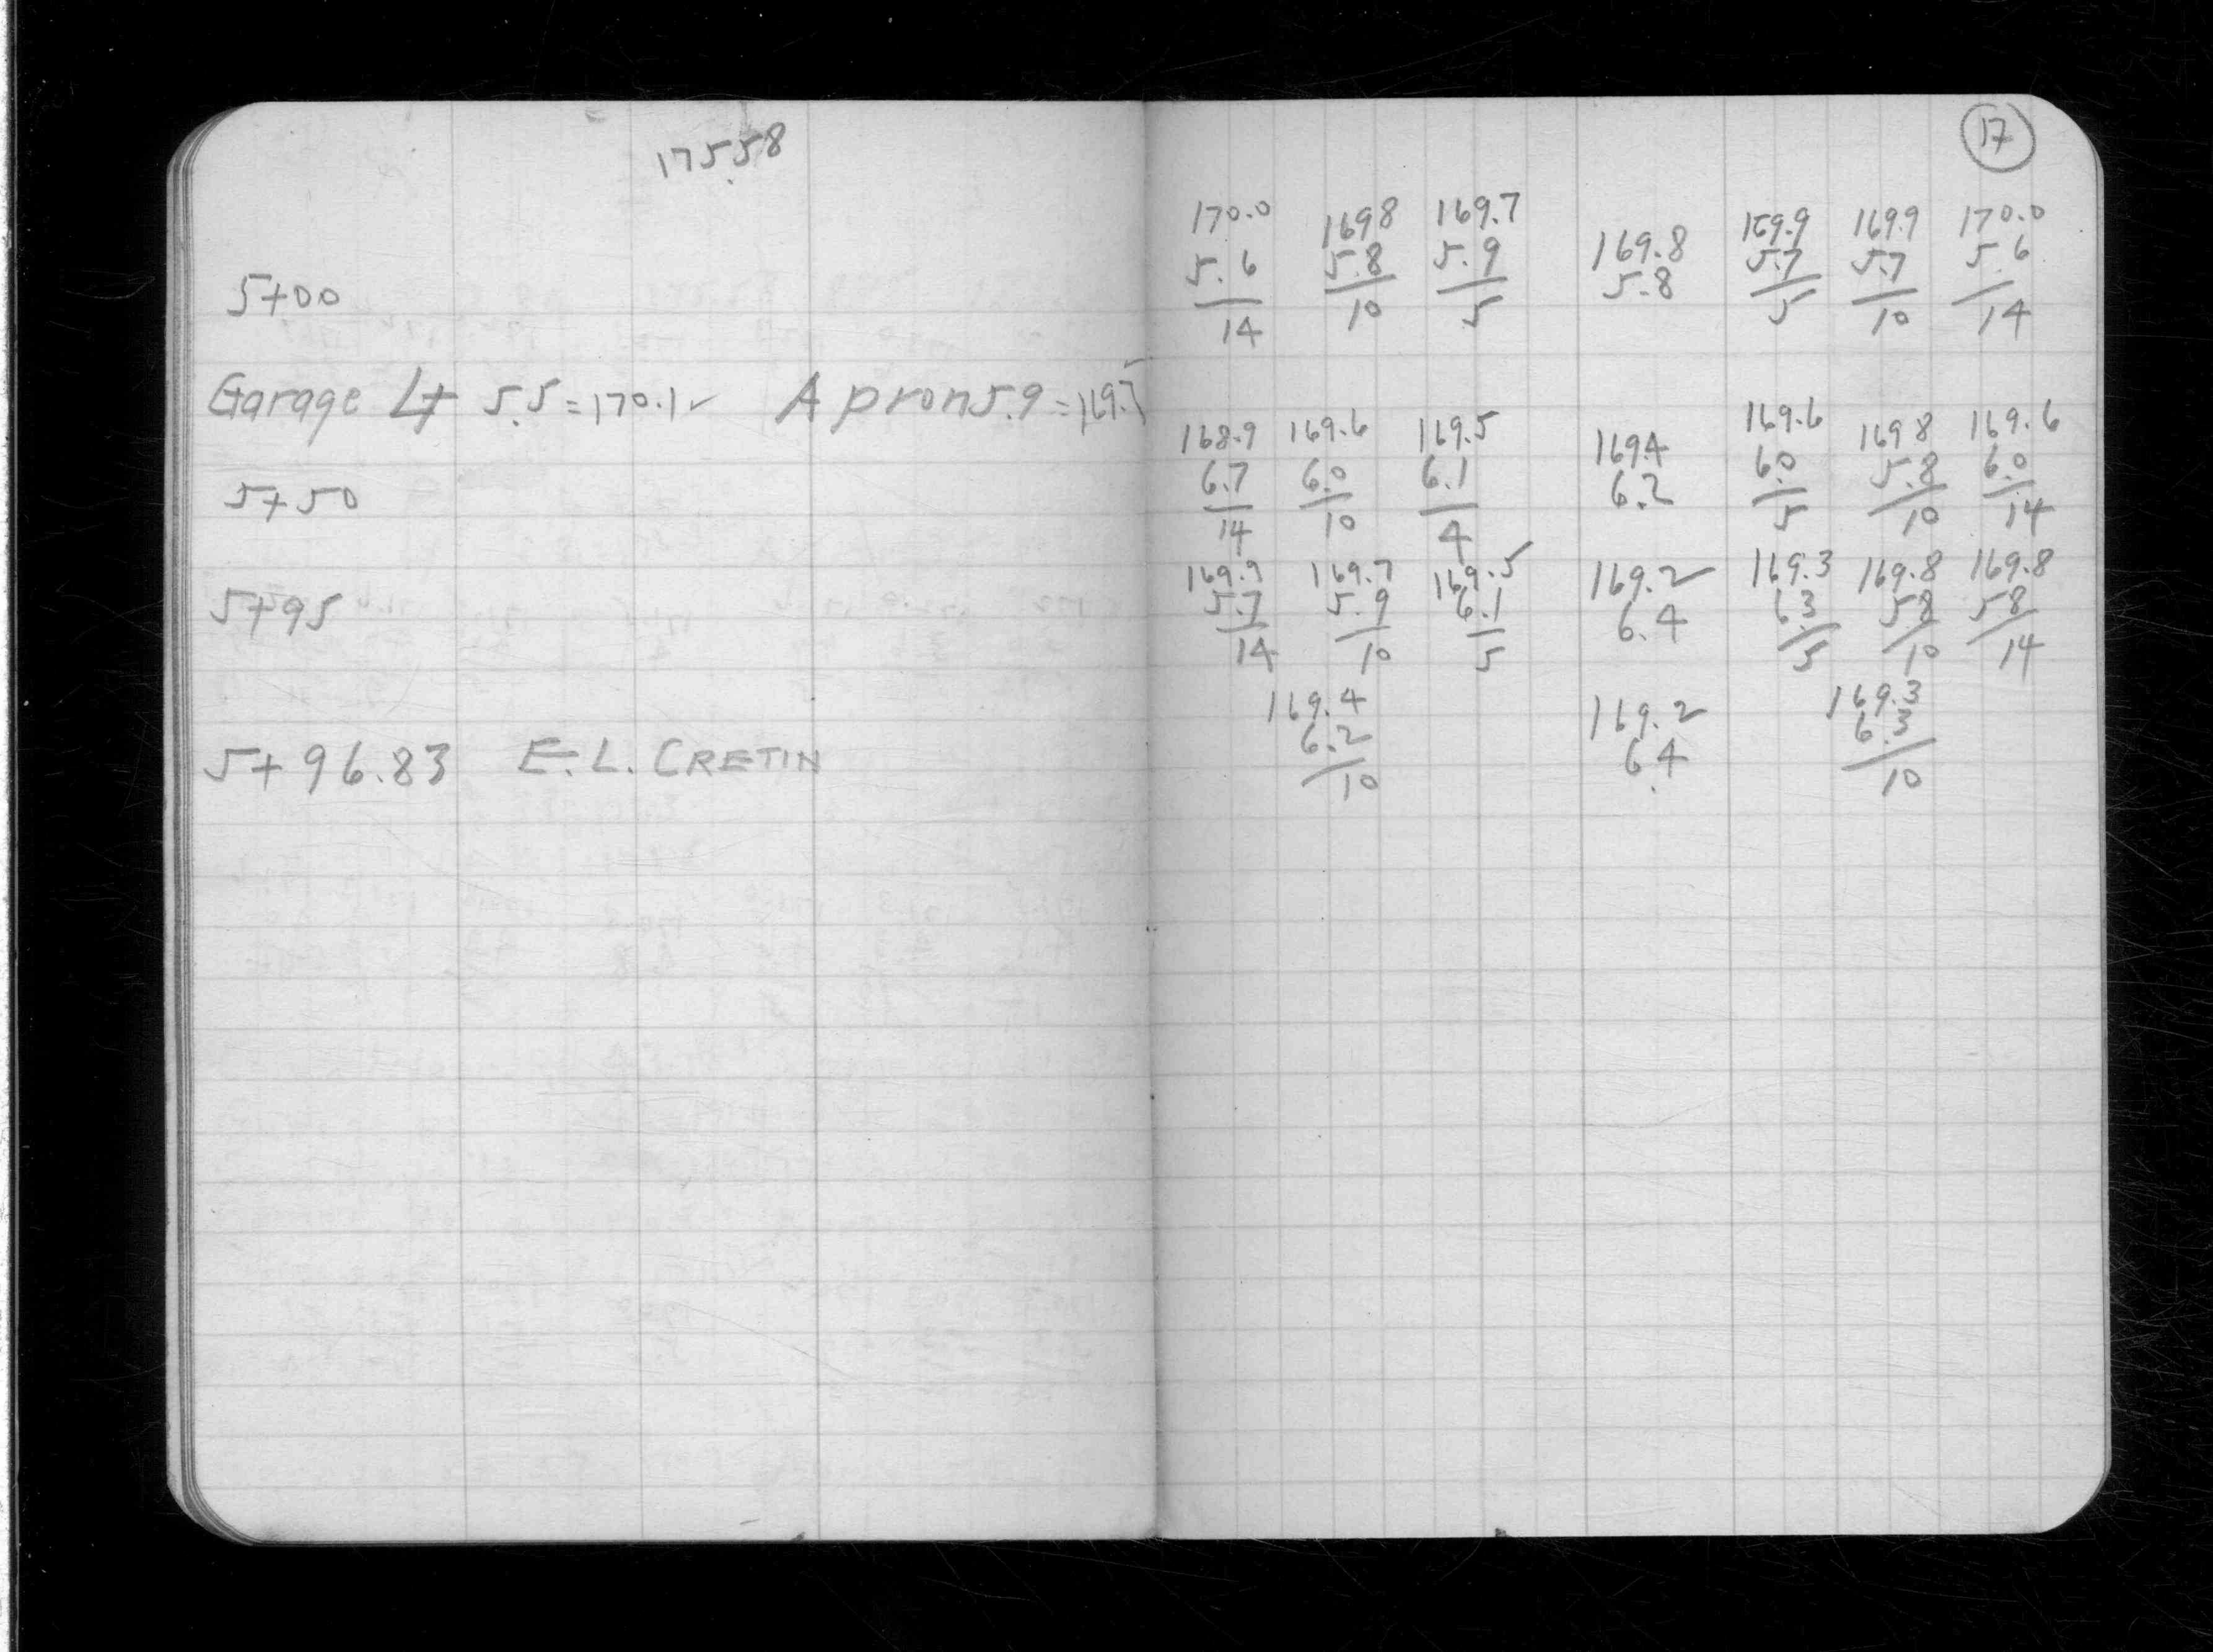 175.58
5+00
Garage Lt 5.5 = 170.1 ✓ Apron 5.9 = 169.7
5+50
5+95
5+96.83 E.L. CRETIN
17
170.0 169.8 169.7 169.8 169.9 169.9 170.0
5.6 5.8 5.9 5.8 5.7 5.7 5.6
14 10 5 5 10 14
168.9 169.6 169.5 169.4 169.6 169.8 169.6
6.7 6.0 6.1 6.2 6.0 5.8 6.0
14 10 4 5 10 14
169.9 169.7 169.5 169.2 169.3 169.8 169.8
5.7 5.9 6.1 6.4 6.3 5.8 5.8
14 10 5 5 10 14
169.4 169.2 169.3
6.2 6.4 6.3
10 10